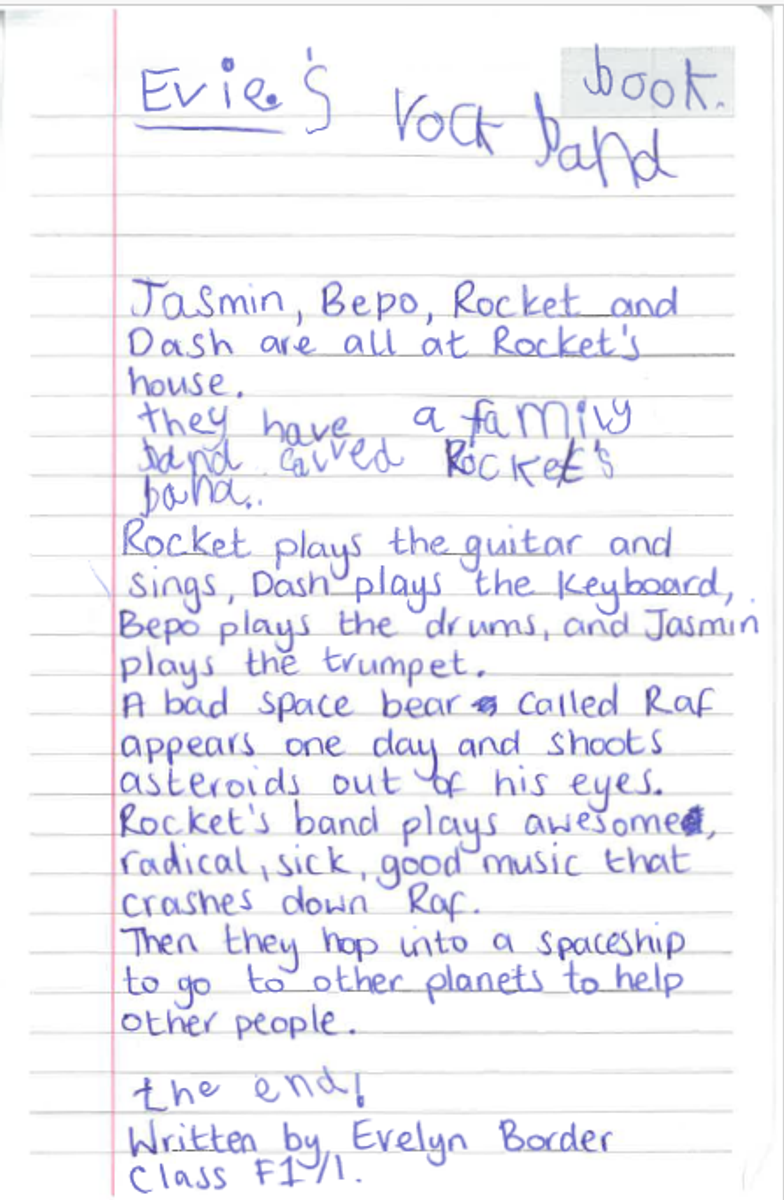 Evie's rock band
book.
Jasmin, Bepo, Rocket and
Dash are all at Rocket's
house.
they have a family
band called Rocket's
band..
Rocket plays the guitar and
sings, Dash plays the keyboard,
Bepo plays the drums, and Jasmin
plays the trumpet.
A bad space bear called Raf
appears one day and shoots
asteroids out of his eyes.
Rocket's band plays awesome,
radical, sick, good music that
crashes down Raf.
Then they hop into a spaceship
to go to other planets to help
other people.
the end!
Written by Evelyn Border
Class F1/1.